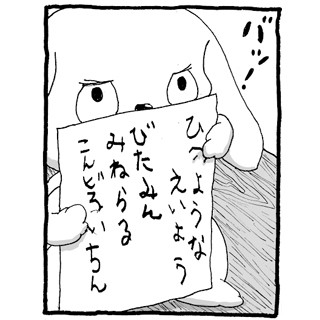 バッ!
ひつような
えいよう
びたみん
みねらる
こんどろいちん